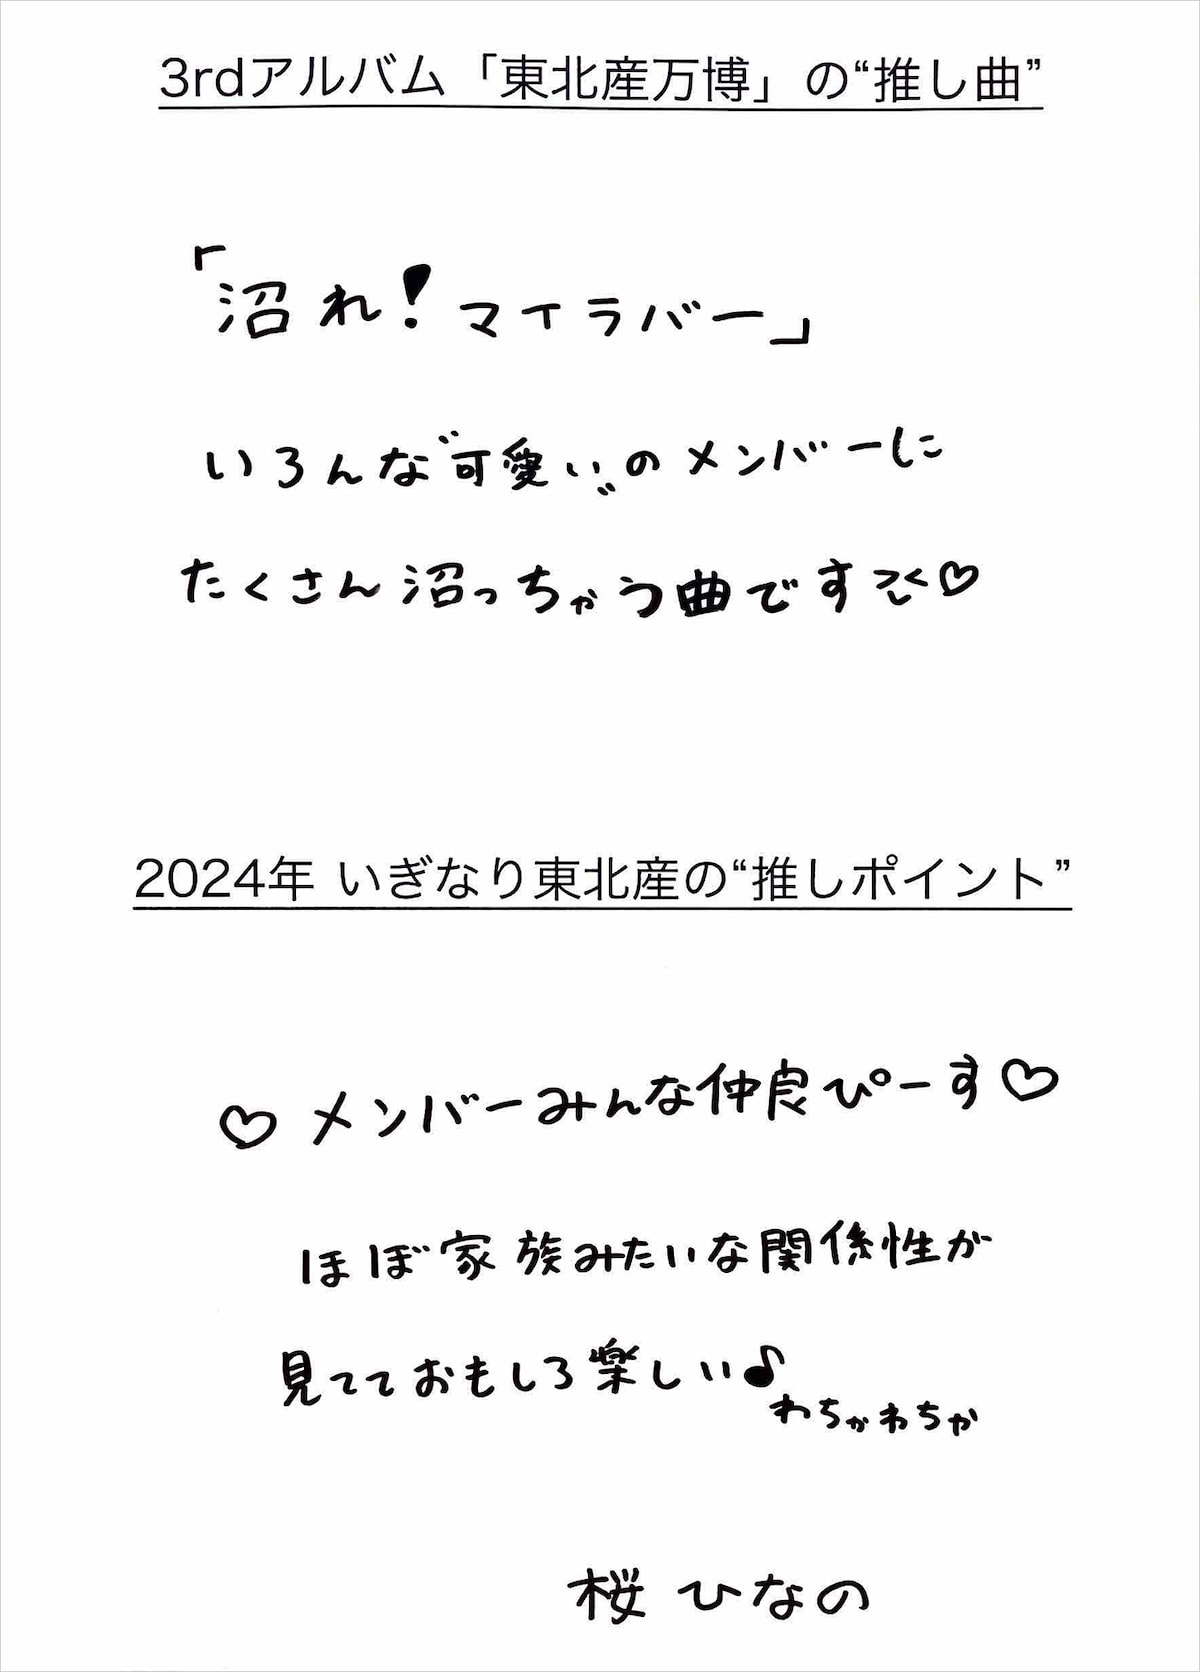 3rdアルバム「東北産万博」の“推し曲”
「沼れ!マイラバー」
いろんな〝可愛い〟のメンバーに
たくさん沼っちゃう曲です>̴<♡
2024年 いぎなり東北産の“推しポイント”
♡メンバーみんな仲良ぴーす♡
ほぼ家族みたいな関係性が
見てておもしろ楽しい♪
わちゃわちゃ
桜 ひなの